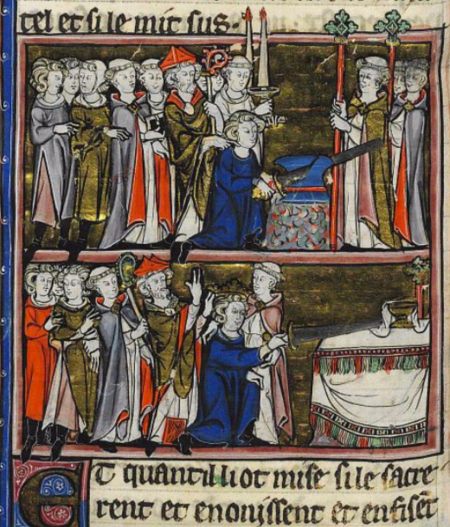 tel et si le mit sus.
Et quant il li ot mise si le sacre
rent et et enfisēt